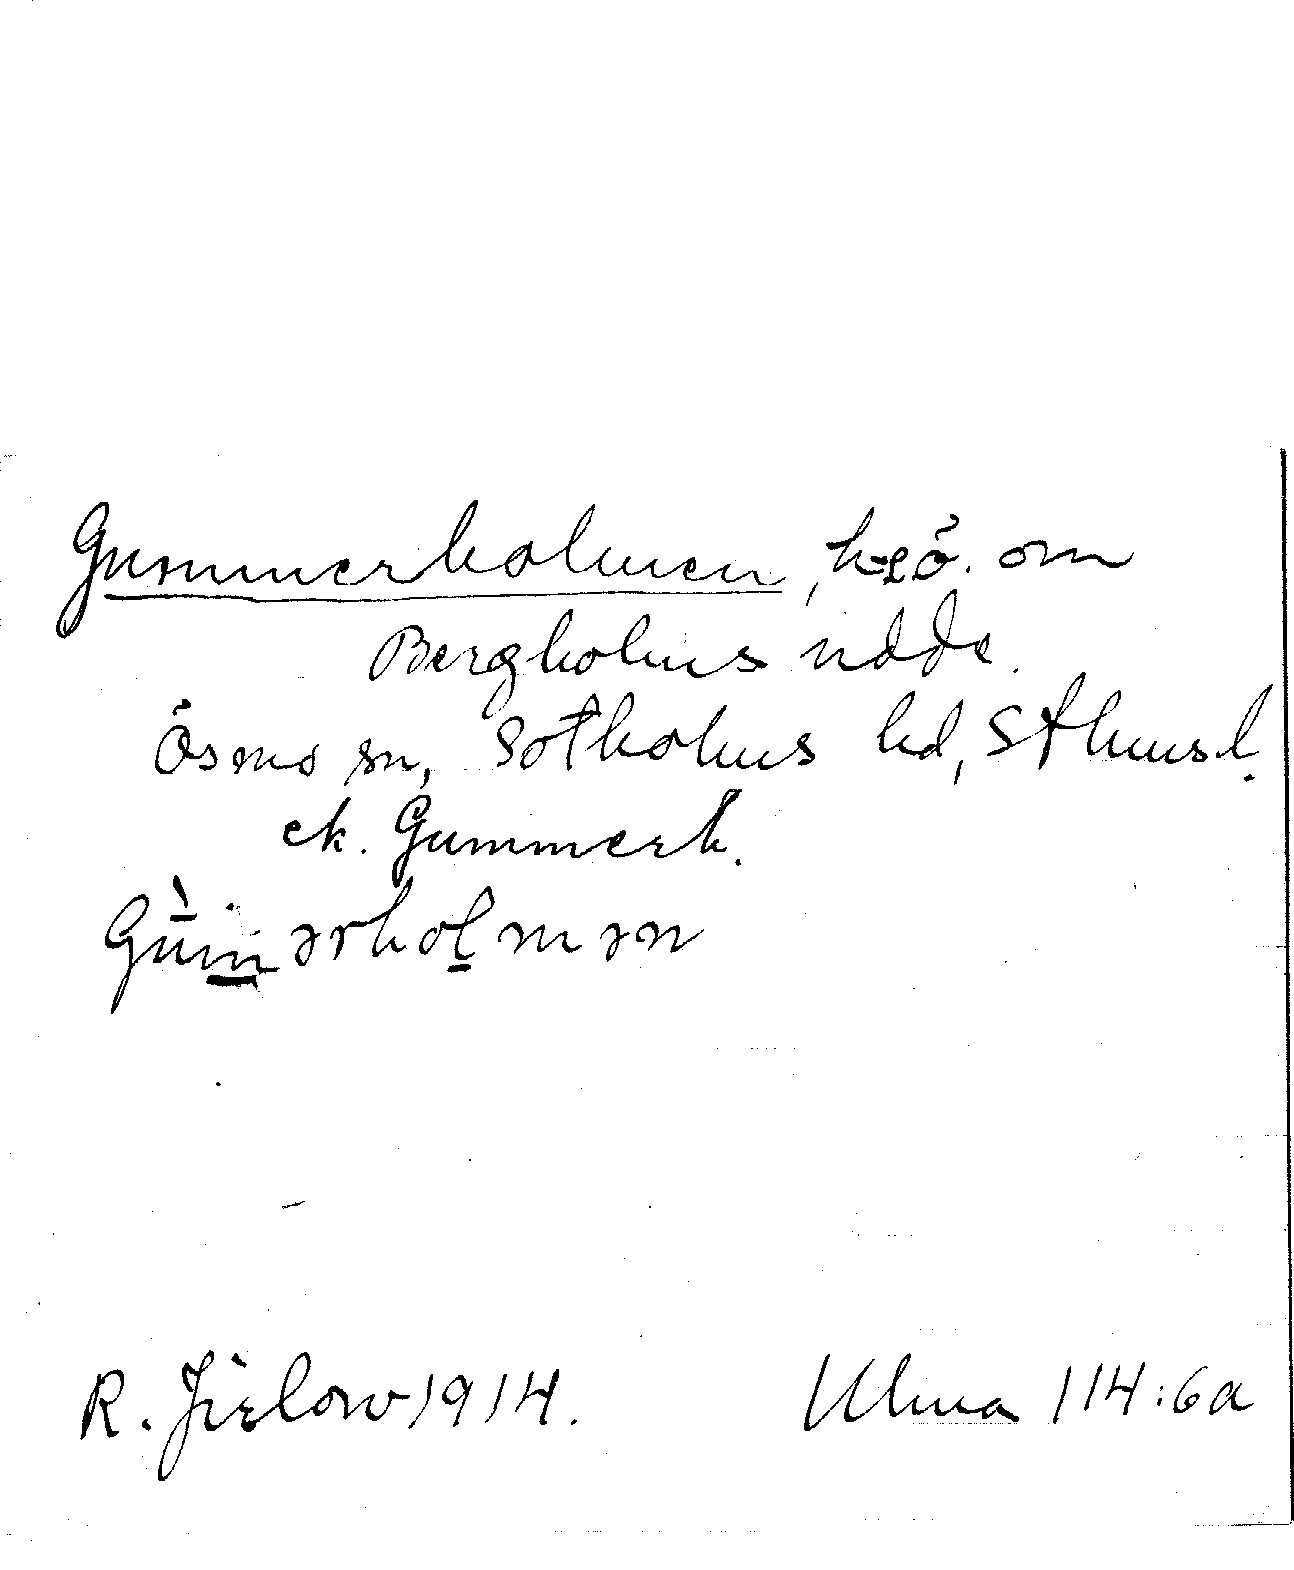 Gummerholmen, h-sö. om
Bergholms udde.
Ösmo sn, Sotholms hd, Sthmsl.
ek. Gummerh.
Gùmərholmən
R. Jirlow 1914.
Ulma 114:6a